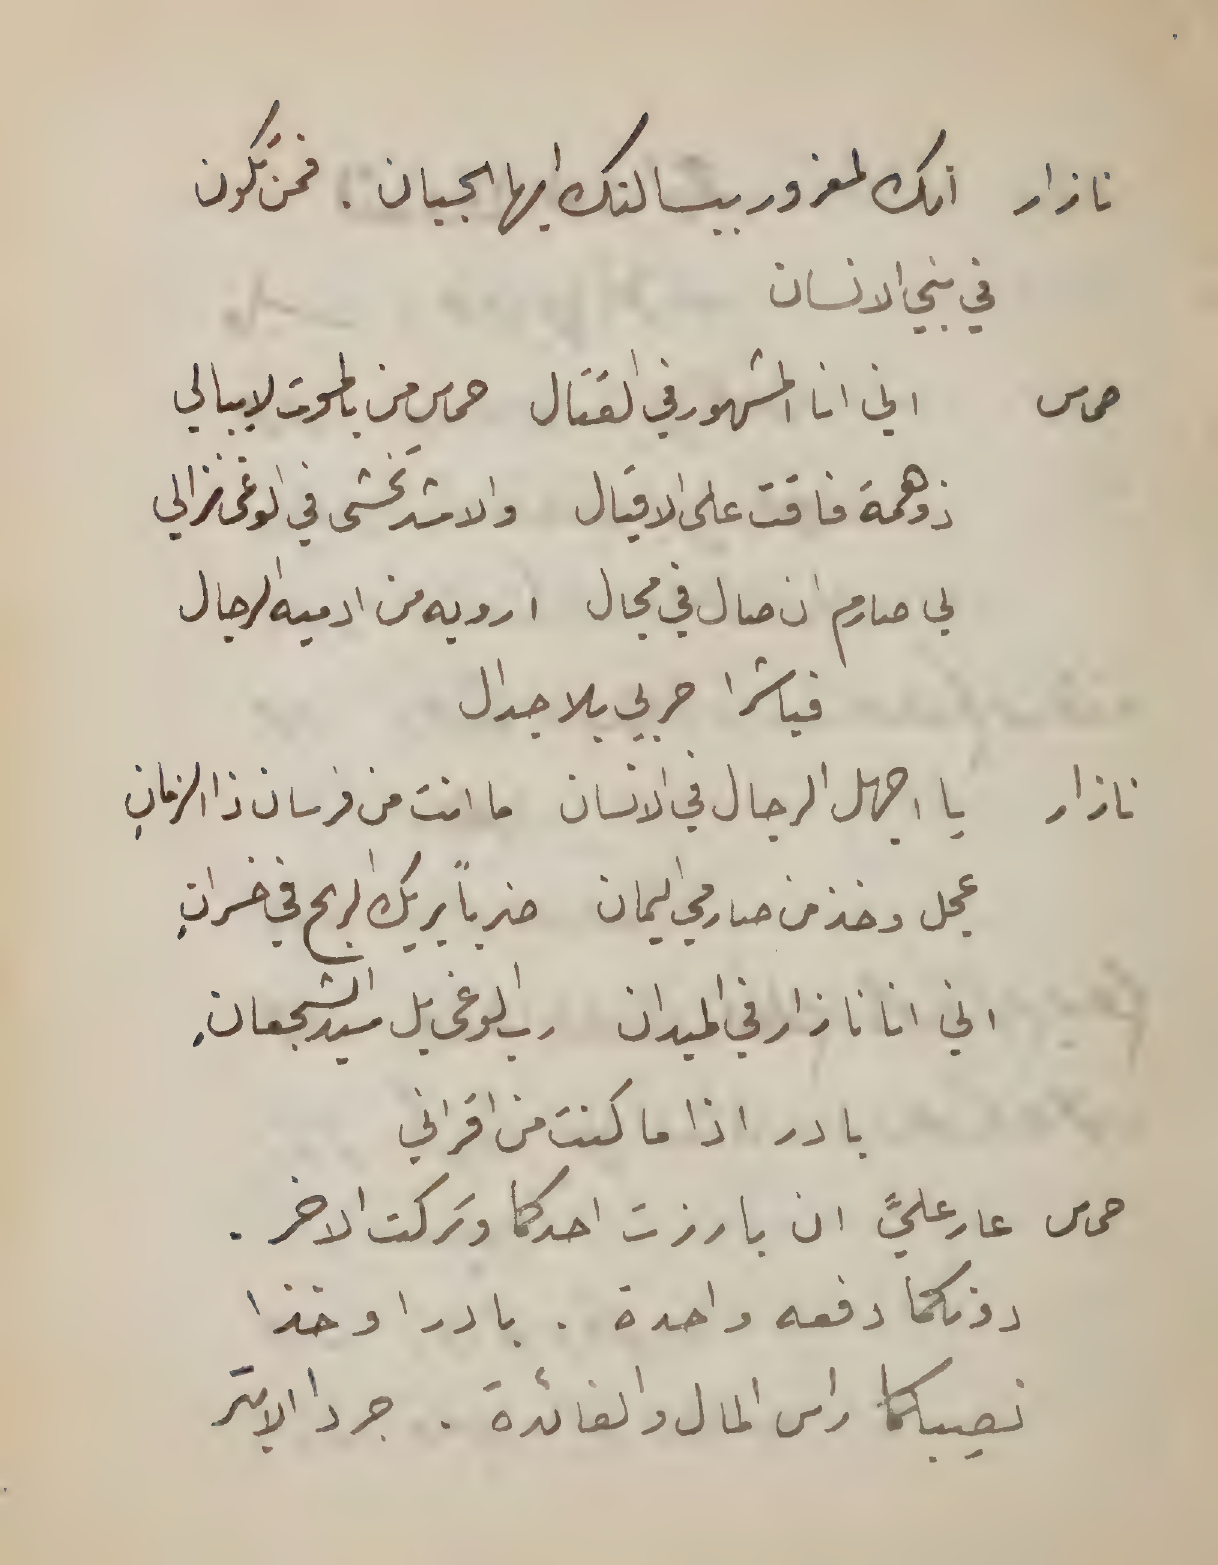 نازار انك لمغرور ببسالتك ايها الجبان . فمن تكون
في بني الانسان
حماس اني انا المشهور في القتال حماس من بالموت لا يبالي
ذو همة فاقت على الاقيال والاسد تخشى في الوغى نزالي
لي صارم ان صال في مجال ارويه من ادميه الرجال
فباشرا حربي بلا جدال
نازار يا اجهل الرجال في الانسان ما انت من فرسان ذا الزمانِ
عجل وخذ من صارمي اليمان ضرباً يريك الربح في خسرانِ
اني انا نازار في الميدان رب الوغى بل سيد الشجعانِ
بادر اذا ما كنت من اقراني
حماس عار عليَّ ان بارزت احدكما وتركت الاخر .
دونكما دفعه واحدة . بادرا وخذا
نصيباكما راس المال والفائدة . جردا الابتر